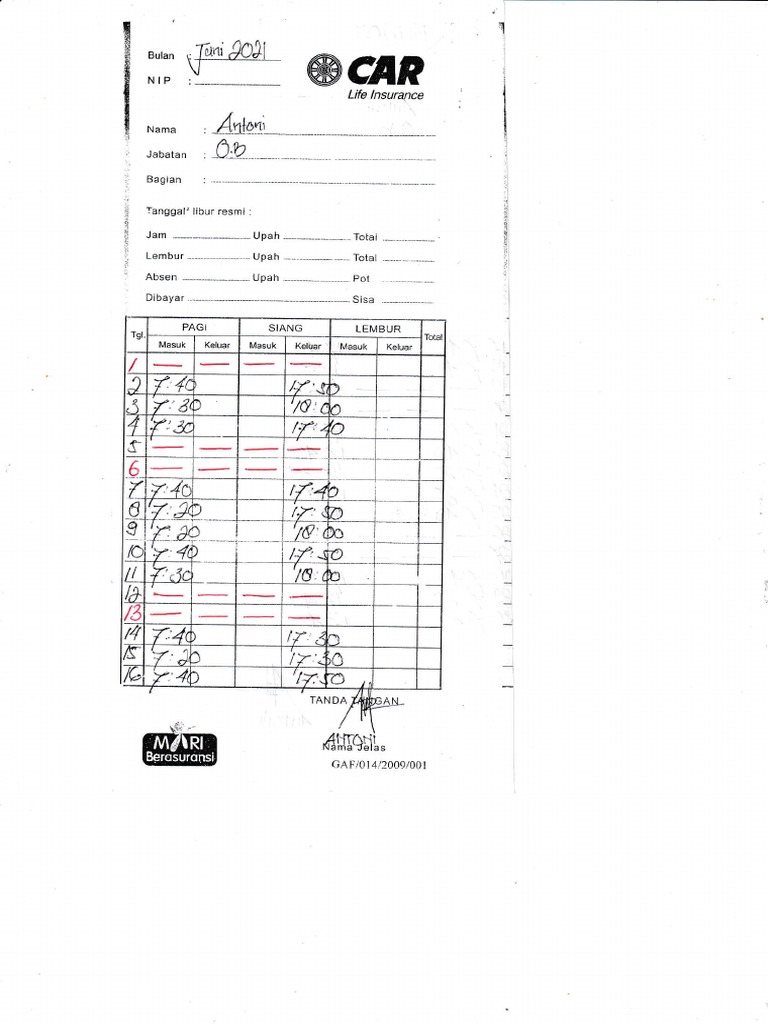 Bulan : Juni 2021
NIP :
CAR
Life Insurance
Nama : Antoni
Jabatan : O.B
Bagian :
Tanggal² libur resmi :
Jam Upah Total
Lembur Upah Total
Absen Upah Pot
Dibayar Sisa
Tgl. PAGI SIANG LEMBUR Total
Masuk Keluar Masuk Keluar Masuk Keluar
1 — — — —
2 7:40 17:50
3 7:30 18:00
4 7:30 17:40
5 — — — —
6 — — — —
7 7:40 17:40
8 7:20 17:50
9 7:20 18:00
10 7:40 17:50
11 7:30 18:00
12 — — — —
13 — — — —
14 7:40 17:30
15 7:20 17:30
16 7:40 17:50
TANDA TANGAN
ANTONI
Nama Jelas
MARI
Berasuransi
GAF/014/2009/001